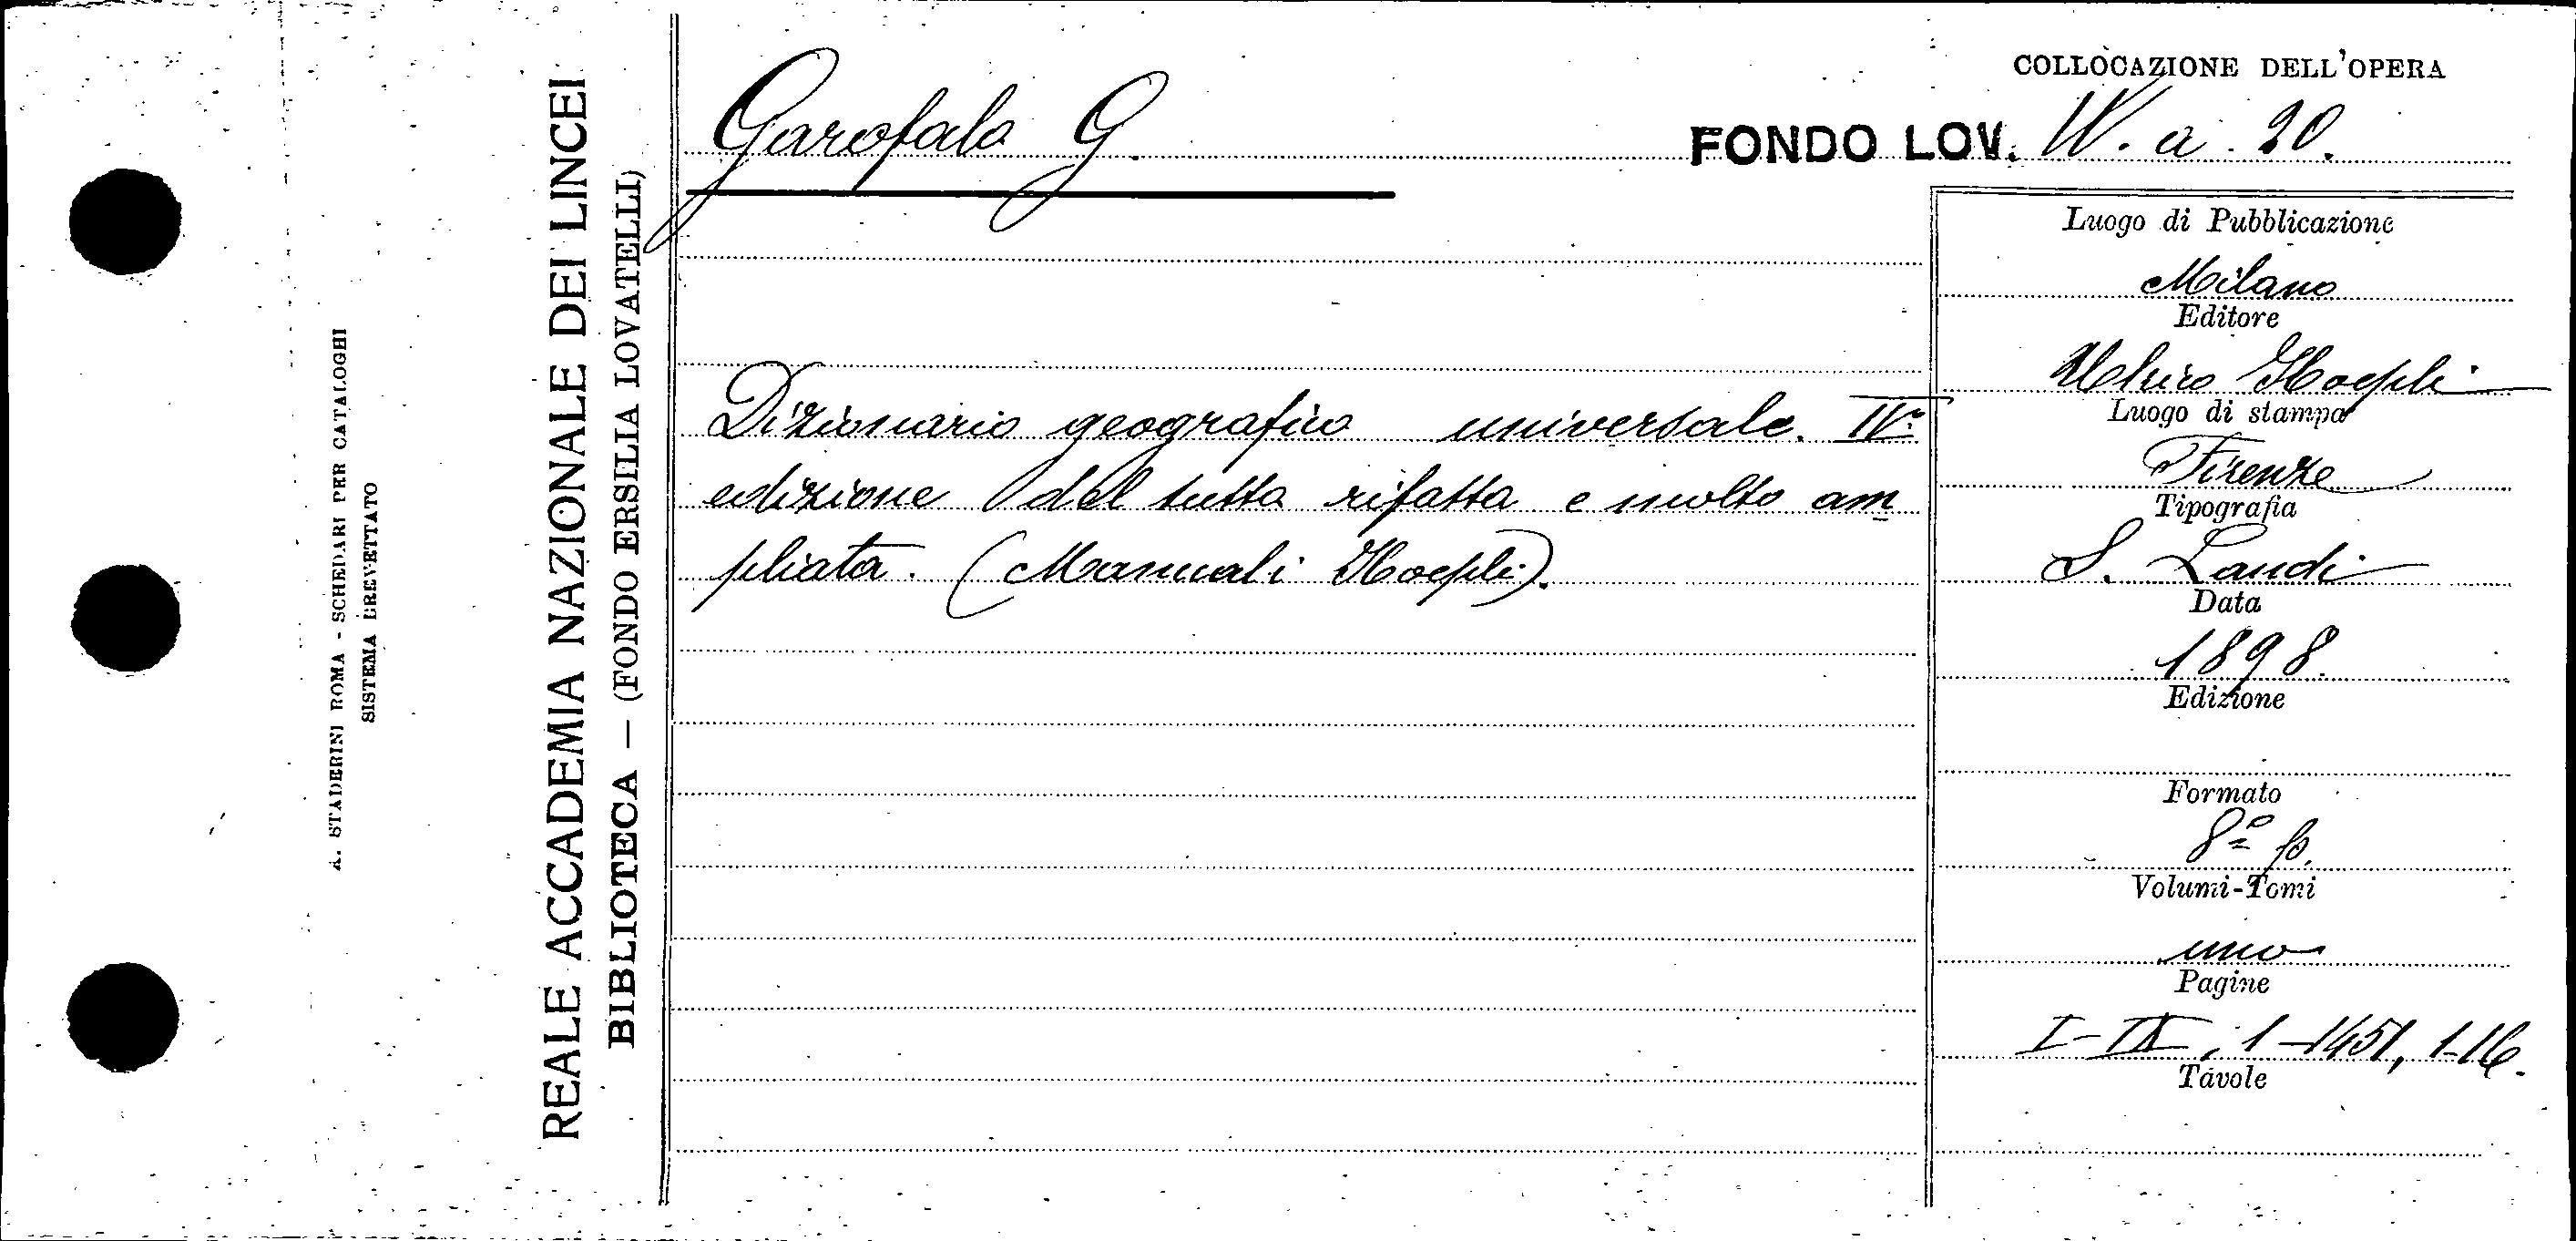 A. STADERINI ROMA - SCHEDARI PER CATALOGHI
SISTEMA BREVETTATO
REALE ACCADEMIA NAZIONALE DEI LINCEI
BIBLIOTECA — (FONDO ERSILIA LOVATELLI)
COLLOCAZIONE DELL'OPERA
Garofalo G.
FONDO LOV. W. a. 20.
Dizionario geografico universale. IVa
edizione del tutto rifatta e molto am
pliata. (Manuali Hoepli).
Luogo di Pubblicazione
Milano
Editore
Ulrico Hoepli
Luogo di stampa
Firenze
Tipografia
S. Landi
Data
1898.
Edizione
Formato
8º p.
Volumi-Tomi
uno
Pagine
I-IX; 1-1451, 1-16.
Tavole